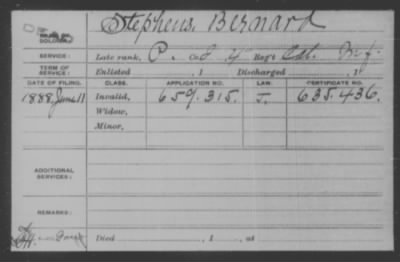 Stephens, Bernard
SOLDIER:
SERVICE: Late rank, P. Co. Reg't Cal. Inf.
TERM OF SERVICE: Enlisted , 1 Discharged , 1
DATE OF FILING. CLASS. APPLICATION NO. LAW. CERTIFICATE NO.
1888, June 11 Invalid, 659.315. J. 635.436.
Widow,
Minor,
ADDITIONAL SERVICES:
REMARKS:
Died , 1 , at